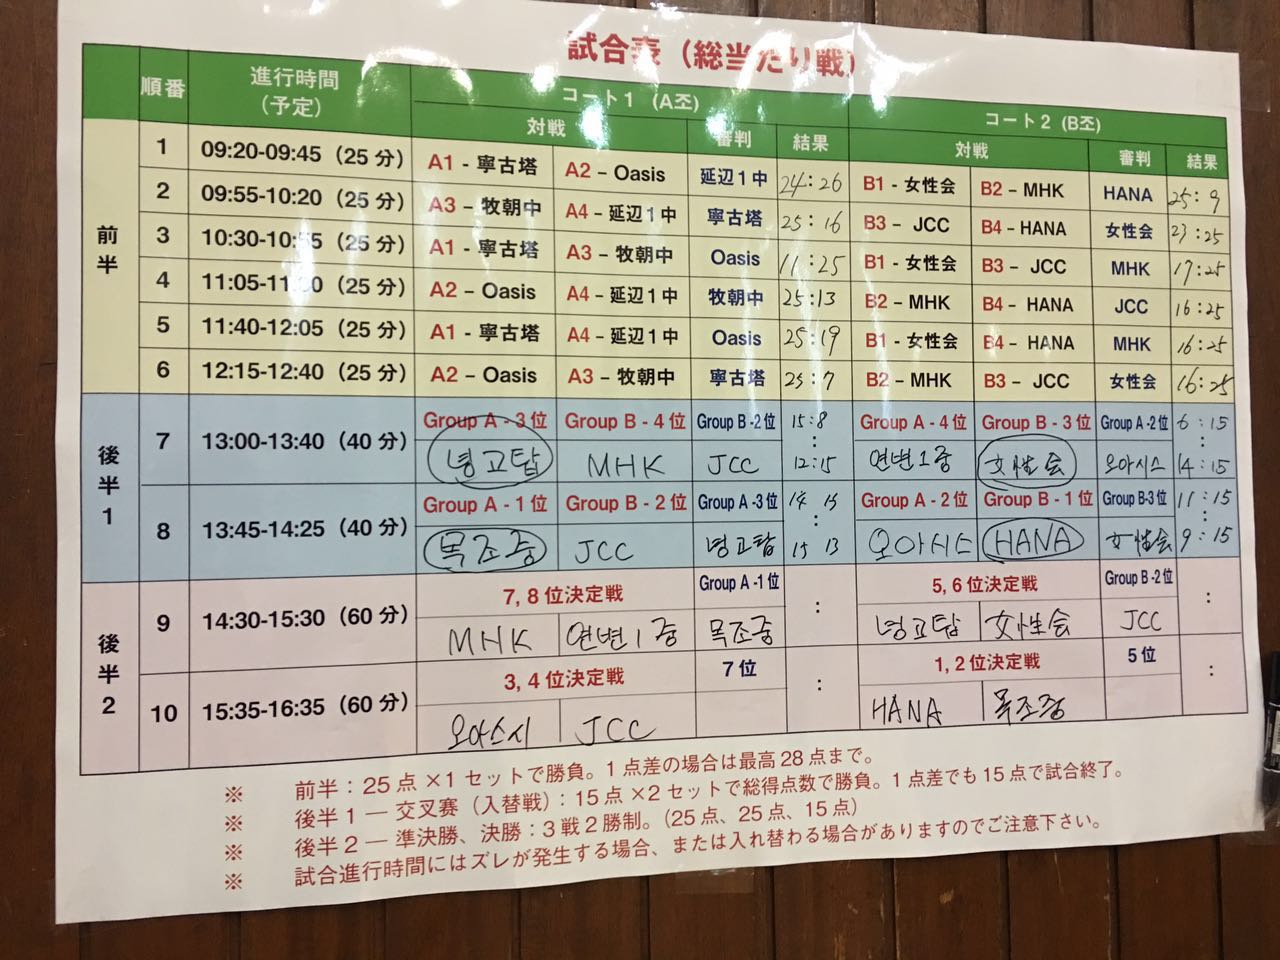 試合表（総当たり戦）
順番 進行時間（予定） コート1 (A조) コート2 (B조)
対戦 審判 結果 対戦 審判 結果
前半
1 09:20-09:45（25分） A1 - 寧古塔 A2 – Oasis 延辺1中 24:26 B1 - 女性会 B2 – MHK HANA 25:9
2 09:55-10:20（25分） A3 - 牧朝中 A4 - 延辺1中 寧古塔 25:16 B3 – JCC B4 - HANA 女性会 23:25
3 10:30-10:55（25分） A1 - 寧古塔 A3 – 牧朝中 Oasis 11:25 B1 - 女性会 B3 – JCC MHK 17:25
4 11:05-11: 0（25分） A2 – Oasis A4 - 延辺1中 牧朝中 25:13 B2 – MHK B4 – HANA JCC 16:25
5 11:40-12:05（25分） A1 - 寧古塔 A4 – 延辺1中 Oasis 25:19 B1 - 女性会 B4 – HANA MHK 16:25
6 12:15-12:40（25分） A2 – Oasis A3 – 牧朝中 寧古塔 25:7 B2 – MHK B3 – JCC 女性会 16:25
後半1
7 13:00-13:40（40分） Group A - 3位 Group B - 4位 Group B -2位 15:8 Group A - 4位 Group B - 3位 Group A -2位 6:15
녕고탑 MHK JCC : 12:15 연변1중 女性会 오아시스 : 14:15
8 13:45-14:25（40分） Group A - 1位 Group B - 2位 Group A -3位 14 15 Group A - 2位 Group B - 1位 Group B-3位 11:15
목조중 JCC 녕고탑 : 15 13 오아시스 HANA 女性会 : 9:15
後半2
9 14:30-15:30（60分） 7, 8位決定戦 Group A -1位 : 5, 6位決定戦 Group B -2位 :
MHK 연변1중 목조중 녕고탑 女性会 JCC
10 15:35-16:35（60分） 3, 4位決定戦 7位 : 1, 2位決定戦 5位 :
오아스시 JCC HANA 목조중
※ 前半：25点×1セットで勝負。1点差の場合は最高28点まで。
※ 後半1 — 交叉賽（入替戦）：15点×2セットで総得点数で勝負。1点差でも15点で試合終了。
※ 後半2 — 準決勝、決勝：3戦2勝制。（25点、25点、15点）
※ 試合進行時間にはズレが発生する場合、または入れ替わる場合がありますのでご注意下さい。